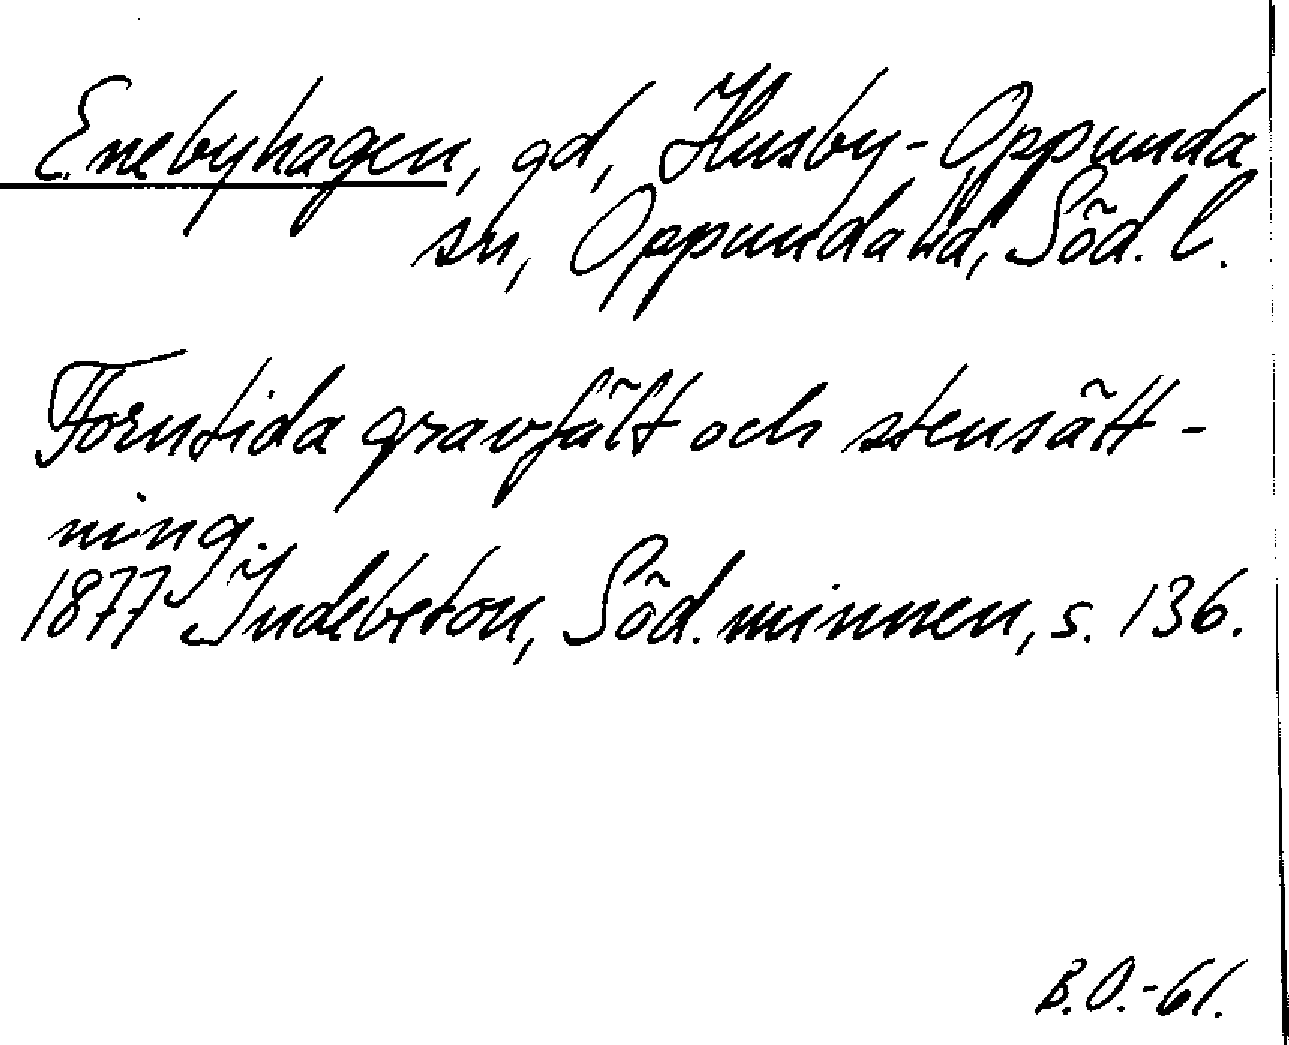 Enebyhagen, gd, Husby-Oppunda
sn, Oppunda hd, Söd. l.
Forntida gravfält och stensätt-
ning.
1877 Indebetou, Söd. minnen, s. 136.
B.O.-61.